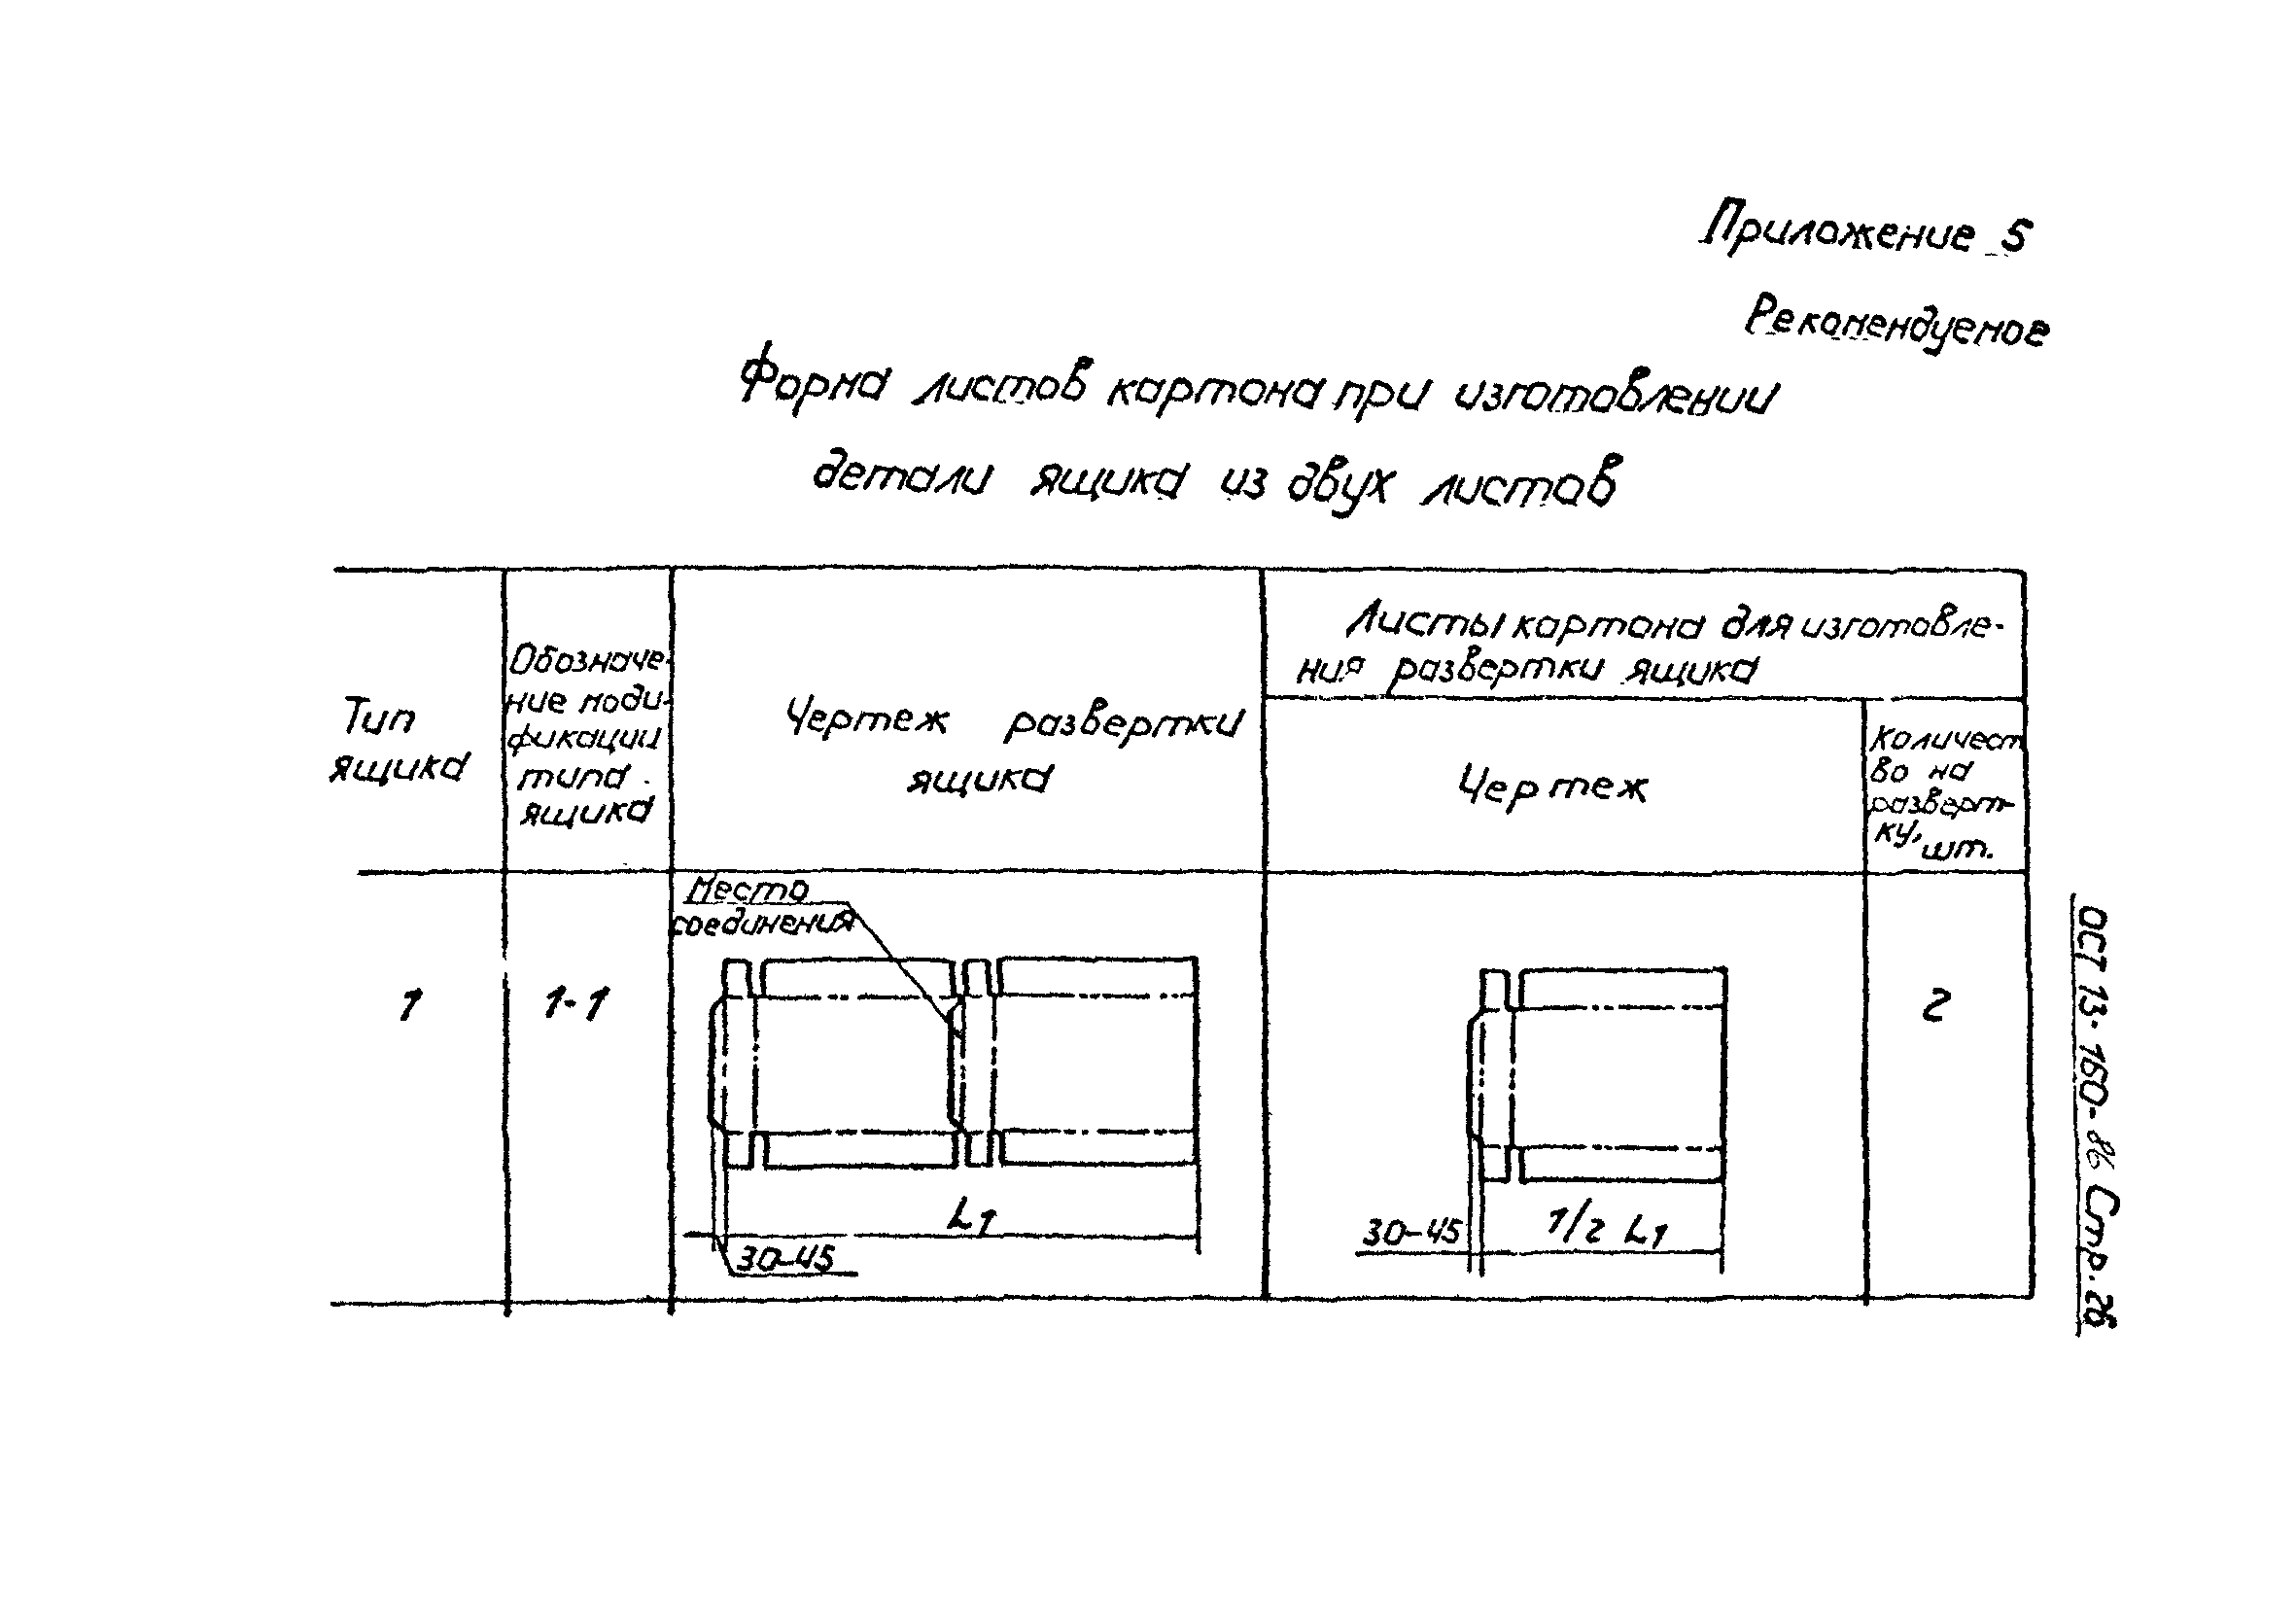 Приложение 5
Рекомендуемое
Форма листов картона при изготовлении
детали ящика из двух листов
Тип
ящика
Обозначе-
ние моди-
фикации
типа
ящика
Чертеж развертки
ящика
Листы картона для изготовле-
ния развертки ящика
Чертеж
Количест
во на
разверт-
ку,
шт.
1
1-1
Место
соединения
L1
30-45
30-45
1/2 L1
2
ОСТ 13-160-86 Стр. 26